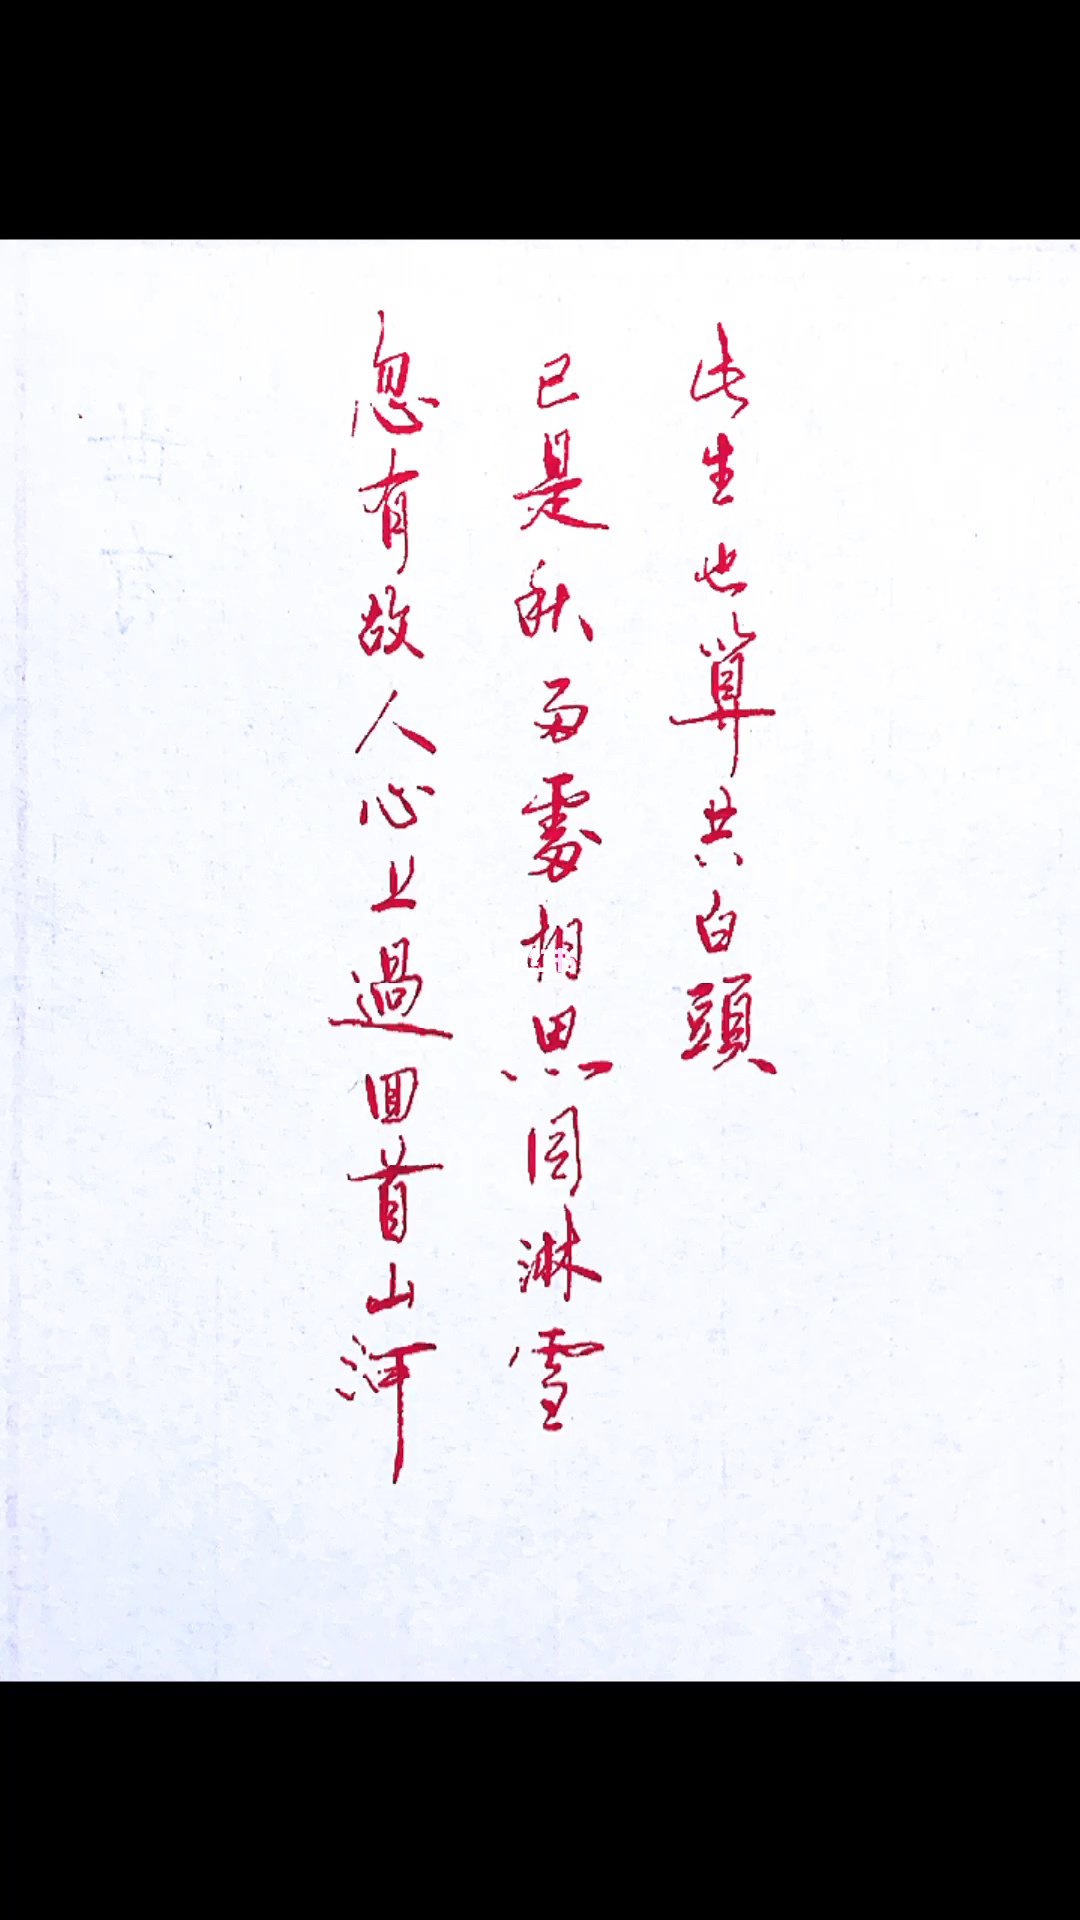 忽有故人心上過回首山河
已是秋兩處相思同淋雪
此生也算共白頭